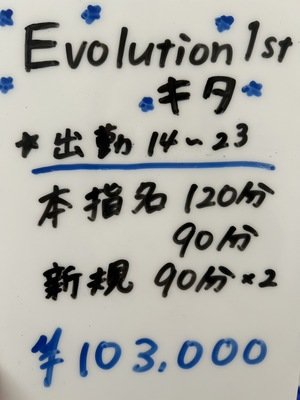 Evolution 1st
キタ
*出勤 14~23
本指名 120分
90分
新規 90分×2
¥103.000